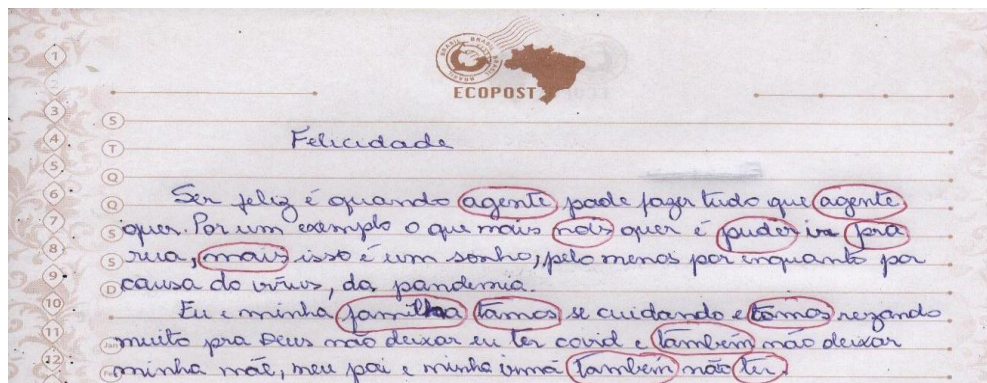 BRASIL BRASIL BRASIL
ECOPOST
Felicidade
Ser feliz é quando agente pode fazer tudo que agente
quer. Por um exemplo o que mais nois quer é puder ir pra
rua, mais isso é um sonho, pelo menos por enquanto por
causa do vírus, da pandemia.
Eu e minha familha tamos se cuidando e tamos rezando
muito pra Deus não deixar eu ter covid e também não deixar
minha mãe, meu pai e minha irmã também não ter.
1
3
4
5
6
7
8
9
10
11
12
S
T
Q
Q
S
S
D
Jan